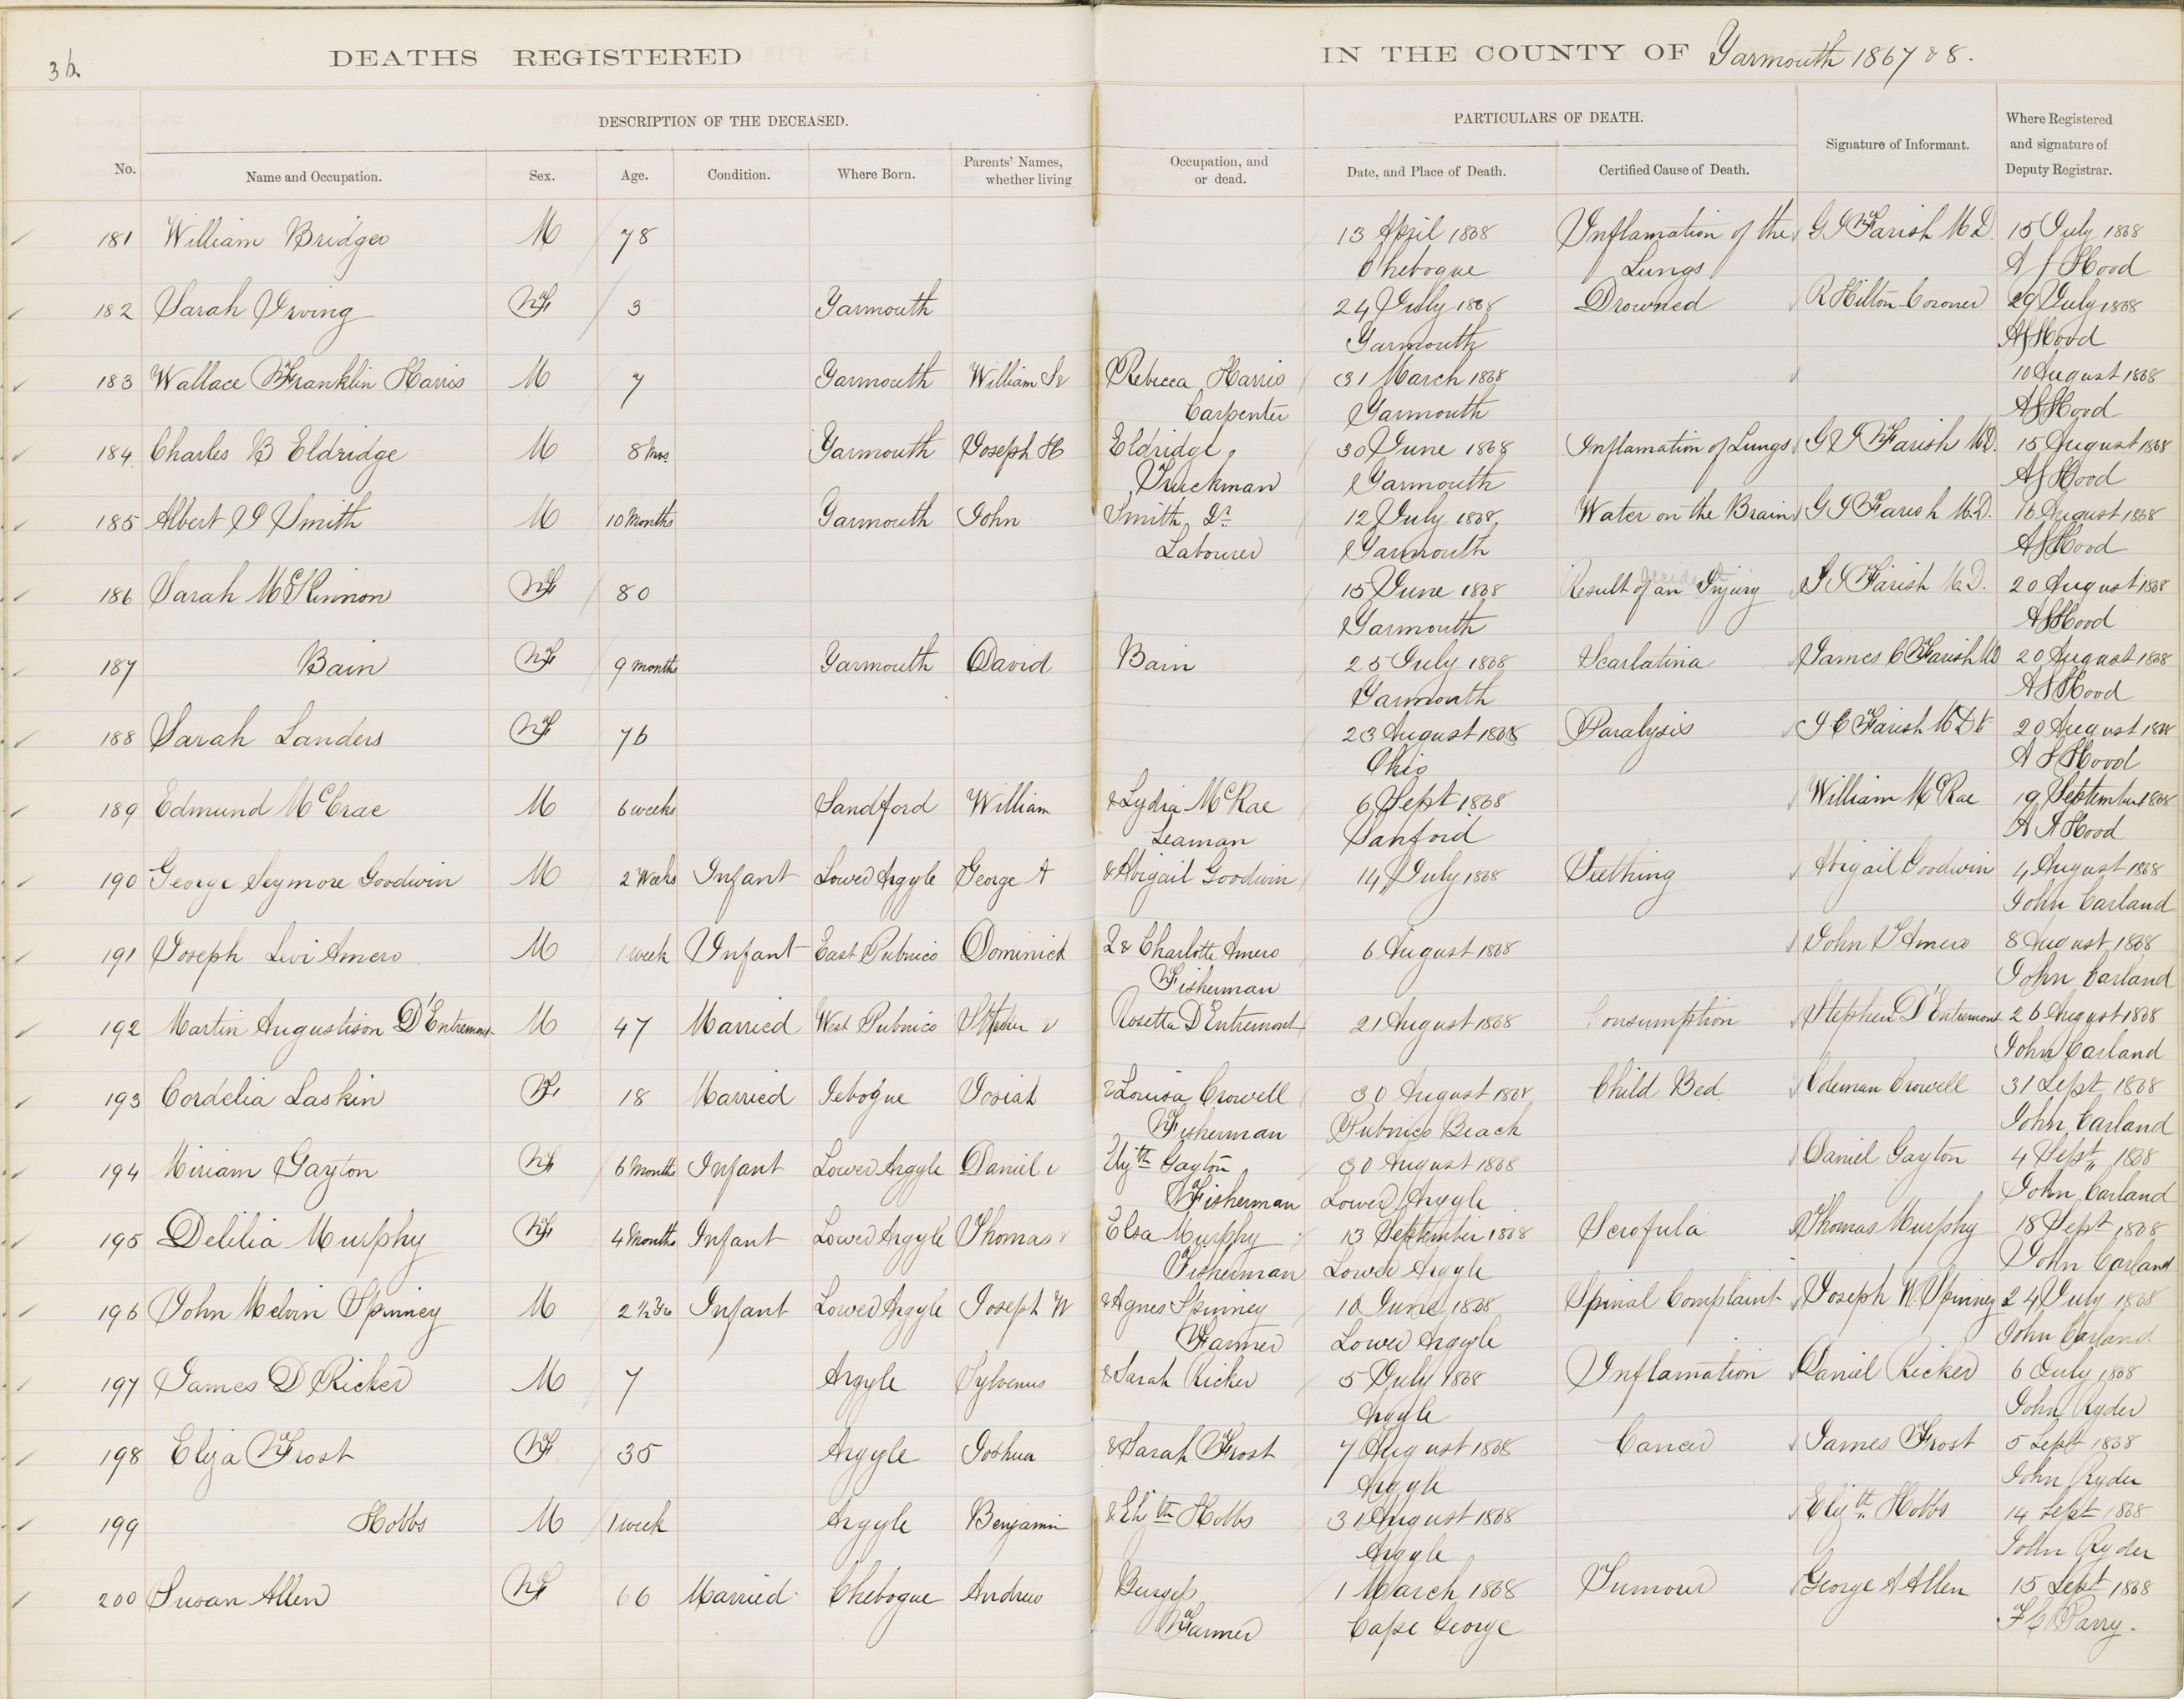 36
DEATHS REGISTERED IN THE COUNTY OF Yarmouth 1867 & 8.
DESCRIPTION OF THE DECEASED. PARTICULARS OF DEATH. Signature of Informant. Where Registered and signature of Deputy Registrar.
No. Name and Occupation. Sex. Age. Condition. Where Born. Parents' Names, whether living Occupation, and or dead. Date, and Place of Death. Certified Cause of Death.
181 William Bridgeo M 78 13 April 1868 Inflamation of the G J Farish M.D. 15 July 1868
Chebogue Lungs A J Hood
182 Sarah Irving F 3 Yarmouth 24 July 1868 Drowned R Hilton Coroner 29 July 1868
Yarmouth A J Hood
183 Wallace Franklin Harris M 7 Yarmouth William S & Rebecca Harris 31 March 1868 10 August 1868
Carpenter Yarmouth A J Hood
184 Charles B Eldridge M 8 Mos Yarmouth Joseph H Eldridge 30 June 1868 Inflamation of Lungs G J Farish M.D. 15 August 1868
Truckman Yarmouth A J Hood
185 Albert J Smith M 10 Months Yarmouth John Smith Jr 12 July 1868 Water on the Brain G J Farish M.D. 16 August 1868
Labourer Yarmouth A J Hood
186 Sarah McKinnon F 80 15 June 1868 Result of an Injury G J Farish M.D. 20 August 1868
Yarmouth A J Hood
187 Bain F 9 months Yarmouth David Bain 25 July 1868 Scarlatina James C Farish MD 20 August 1868
Yarmouth A J Hood
188 Sarah Landers F 76 23 August 1868 Paralysis J C Farish M D 20 August 1868
Ohio A J Hood
189 Edmund McCrae M 6 weeks Sandford William & Lydia McRae 6 Sept 1868 William McRae 19 September 1868
Seaman Sanford A J Hood
190 George Seymore Goodwin M 2 Weeks Infant Lower Argyle George A & Abigail Goodwin 14 July 1868 Teething Abigail Goodwin 4 August 1868
John Carland
191 Joseph Levi Amero M 1 week Infant East Pubnico Dominick L & Charlotte Amero 6 August 1868 John L Amero 8 August 1868
Fisherman John Carland
192 Martin Augustison D'Entremont M 47 Married West Pubnico Stephen & Rosetta D'Entremont 21 August 1868 Consumption Stephen D'Entremont 26 August 1868
John Carland
193 Cordelia Laskin F 18 Married Jebogue Josiah & Louisa Crowell 30 August 1868 Child Bed Coleman Crowell 31 Sept 1868
Fisherman Pubnico Beach John Carland
194 Miriam Gayton F 6 Months Infant Lower Argyle Daniel & Elizth Gayton 30 August 1868 Daniel Gayton 4 Sept 1868
Fisherman Lower Argyle John Carland
195 Delilia Murphy F 4 Months Infant Lower Argyle Thomas & Elsa Murphy 13 September 1868 Scrofula Thomas Murphy 18 Sept 1868
Fisherman Lower Argyle John Carland
196 John Melvin Spinney M 2 Infant Lower Argyle Joseph W & Agnes Spinney 10 June 1868 Spinal Complaint Joseph W. Spinney 24 July 1868
Farmer Lower Argyle John Carland
197 James D Ricker M 7 Argyle Sylvenus & Sarah Ricker 5 July 1868 Inflamation Daniel Ricker 6 July 1868
Argyle John Ryder
198 Eliza Frost F 35 Argyle Joshua & Sarah Frost 7 August 1868 Cancer James Frost 5 Sept 1868
Argyle John Ryder
199 Hobbs M 1 week Argyle Benjamin & Elizth Hobbs 31 August 1868 Elizth Hobbs 14 Sept 1868
Argyle John Ryder
200 Susan Allen F 66 Married Chebogue Andrew Burgess 1 March 1868 Tumour George A Allen 15 Sept 1868
Farmer Cape George F C Parry.